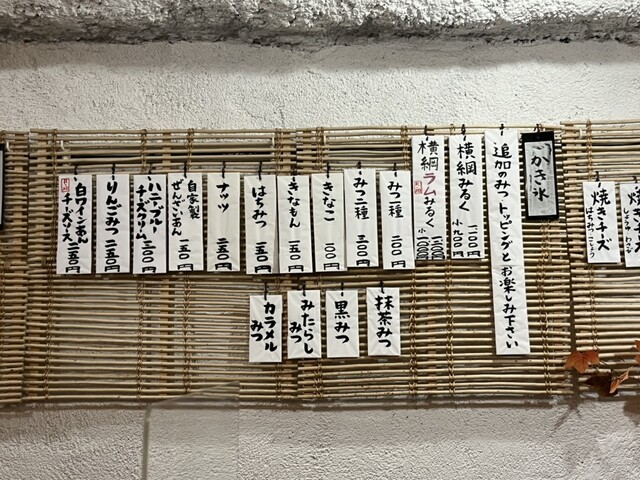 かき氷
追加のみつトッピングとお楽しみ下さい
横綱みるく
一二〇〇円
小九〇〇円
横綱ラムみるく
小
みつ一種
二〇〇円
みつ二種
三〇〇円
きなこ
一〇〇円
きなもん
一五〇円
はちみつ
二五〇円
ナッツ
二五〇円
自家製
ぜんざいあん
二五〇円
チーズクリーム
三〇〇円
りんごみつ
二五〇円
白ワインあん
チーズソース
二五〇円
抹茶みつ
黒みつ
みたらし
みつ
カラメル
みつ
焼きチーズ